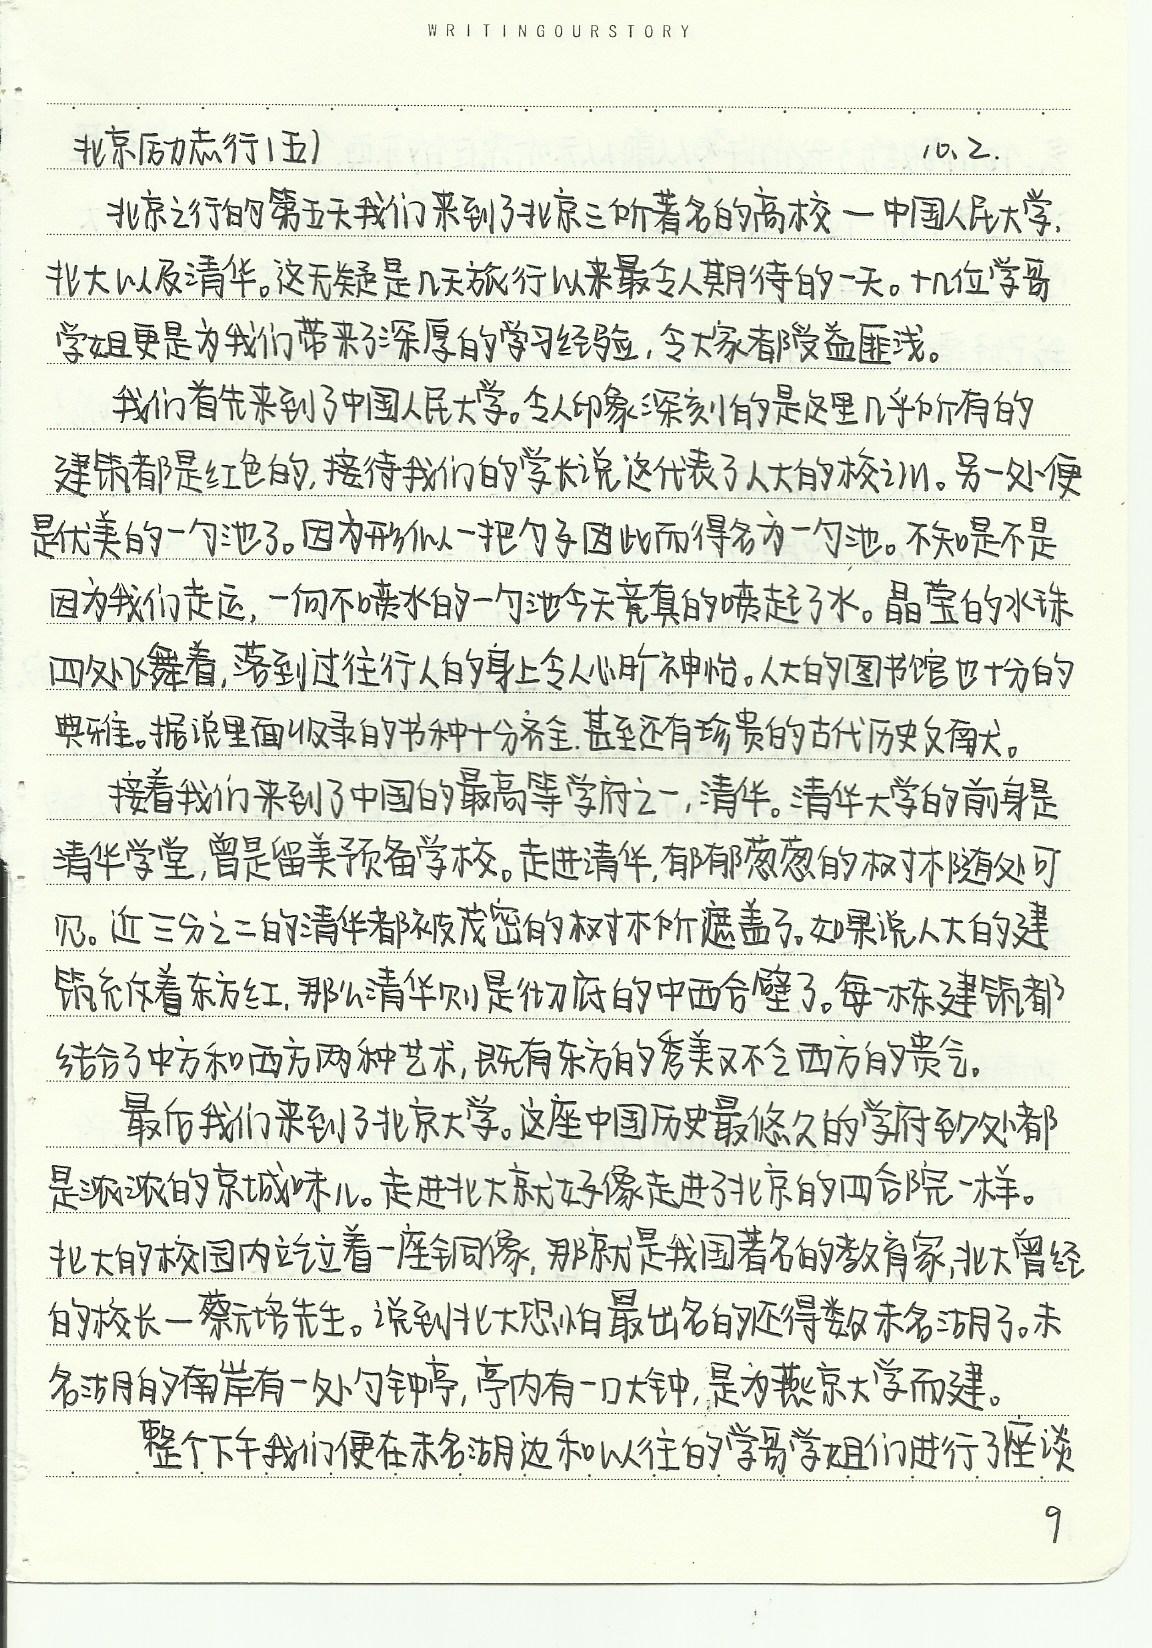 WRITINGOURSTORY
北京励志行(五) 10.2.
北京之行的第五天我们来到了北京三所著名的高校—中国人民大学,
北大以及清华。这无疑是几天旅行以来最令人期待的一天。十几位学哥
学姐更是为我们带来了深厚的学习经验,令大家都受益匪浅。
我们首先来到了中国人民大学。令人印象深刻的是这里几乎所有的
建筑都是红色的,接待我们的学长说这代表了人大的校训。另一处便
是优美的一勺池了。因为形似一把勺子因此而得名为一勺池。不知是不是
因为我们走运,一向不喷水的一勺池今天竟真的喷起了水。晶莹的水珠
四处飞舞着,落到过往行人的身上令人心旷神怡。人大的图书馆也十分的
典雅。据说里面收录的书种十分齐全.甚至还有珍贵的古代历史文献。
接着我们来到了中国的最高等学府之一,清华。清华大学的前身是
清华学堂,曾是留美预备学校。走进清华,郁郁葱葱的树木随处可
见。近三分之二的清华都被茂密的树木所遮盖了。如果说人大的建
筑充斥着东方红,那么清华则是彻底的中西合璧了。每一栋建筑都
结合了中方和西方两种艺术,既有东方的秀美又不乏西方的贵气。
最后我们来到了北京大学。这座中国历史最悠久的学府到处都
是浓浓的京城味儿。走进北大就好像走进了北京的四合院一样。
北大的校园内竖立着一座铜像,那就是我国著名的教育家,北大曾经
的校长—蔡元培先生。说到北大恐怕最出名的还得数未名湖了。未
名湖的南岸有一处勺钟亭,亭内有一口大钟,是为燕京大学而建。
整个下午我们便在未名湖边和以往的学哥学姐们进行了座谈
9